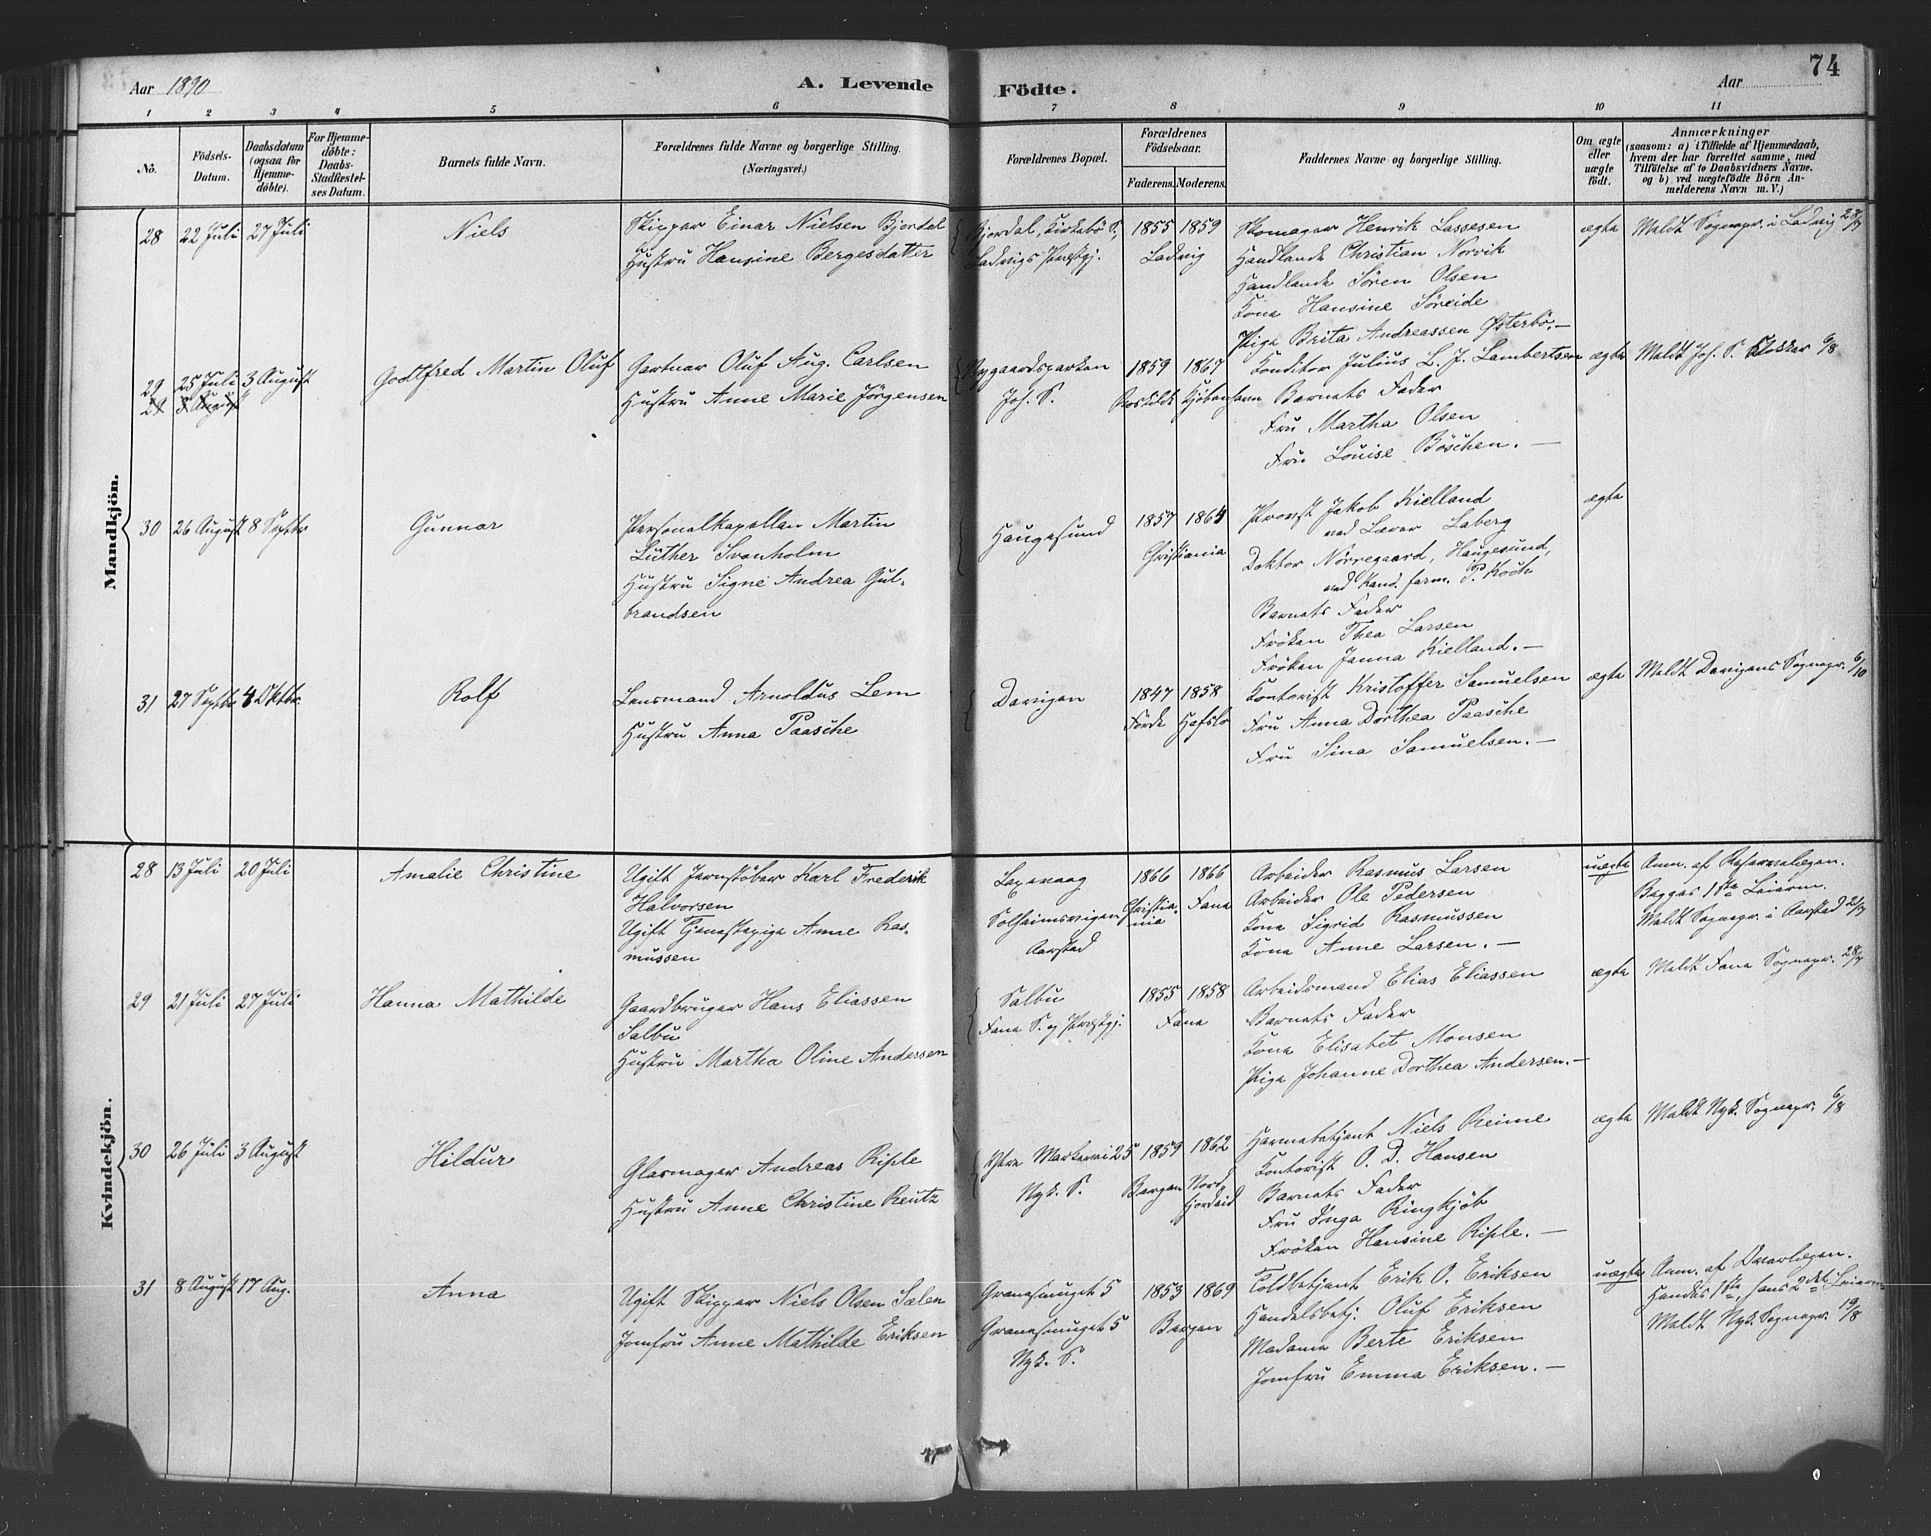 Aar 1890
A. Levende
Födte.
Aar
74
1 2 3 4 5 6 7 8 9 10 11
No.
Födsels-
Datum.
Daabsdatum
(ogsaa for
Hjemme-
döbte).
For Hjemme-
döbte:
Daabs-
Stadfæstel-
ses Datum.
Barnets fulde Navn.
Forældrenes fulde Navne og borgerlige Stilling.
(Næringsvei.)
Forældrenes Bopæl.
Forældrenes
Födselsaar.
Faderens. Moderens.
Faddernes Navne og borgerlige Stilling.
Om ægte
eller
uægte
födt.
Anmærkninger
(saasom: a) i Tilfælde af Hjemmedaab,
hvem der har forrettet samme, med
Tilföielse af to Daabsvidners Navne.
og b) ved uægtefödte Börn An-
melderens Navn m. V.)
Mandkjön.
28 22 Juli 27 Juli
Niels
Skipper Einar Nielsen Bjordal
Hustru Hansine Bergesdatter
Bjordal, Kirkebö S.,
Ladvigs Præstgj.
1855 1859
Ladvig
Skomager Henrik Lassesen
Handlende Christian Norvik
Handlende Sören Olsen
Kone Hansine Söreide
Pige Brita Andreassen Østerbö. —
ægte
Meldt Sognepr. i Ladvig 28/7
29 25 Juli 3 August
29 3 August
Godtfred Martin Oluf
Gartner Oluf Aug. Carlsen
Hustru Anne Marie Jörgensen
Nygaardsparken
Joh. S.
1859 1867
Roskilde Kjöbenhavn
Konditor Julius L. J. Lambertsen
Barnets Fader
Fru Martha Olsen
Fru Louise Böschen. —
ægte
Meldt Joh. S. Klokker 6/8
30 26 August 8 Septbr.
Gunnar
Personalkapellan Martin
Luther Svanholm
Hustru Signe Andrea Gul-
brandsen
Haugesund
1857 1864
Christiania
Provst Jakob Kielland
ved Lærer Laberg
Doktor Nörregaard, Haugesund,
ved Kand. farm. P. Koch
Barnets Fader
Fröken Thea Larsen
Fröken Janna Kielland. —
ægte
31 27 Septbr. 4 Oktbr.
Rolf
Lensmand Arnoldus Lem
Hustru Anna Paasche
Davigen
1847 1858
Förde Hafslo
Kontorist Kristoffer Samuelsen
Fru Anna Dorthea Paasche
Fru Sina Samuelsen. —
ægte
Meldt Davigens Sognepr. 6/10
Kvindekjön.
28 13 Juli 20 Juli
Amalie Christine
Ugift Jernstöber Karl Frederik
Halvorsen
Ugift Tjenestepige Anne Ras-
mussen
Laxevaag
Solheimsvigen
Aarstad
1866 1866
Christia-
nia Fana
Arbeider Rasmus Larsen
Arbeider Ole Pedersen
Kone Sigrid Rasmussen
Kone Anne Larsen. —
uægte
Anm. af Reservelægen.
Begges 1ste Leierm.
Meldt Sognepr. i Aarstad 21/7
29 21 Juli 27 Juli
Hanna Mathilde
Gaardbruger Hans Eliassen
Salbu
Hustru Martha Oline Andersen
Salbu
Fane S. og Præstgj.
1855 1858
Fane
Arbeidsmand Elias Eliassen
Barnets Fader
Kone Elisabet Monsen
Pige Johanne Dorthea Andersen. —
ægte
Meldt Fane Sognepr. 28/7
30 26 Juli 3 August
Hildur
Glasmager Andreas Riple
Hustru Anne Christine Reutz
Östre Markevei 25
Nyk. S.
1859 1862
Bergen Nord
fjordeid
Havnebetjent Niels Reime
Kontorist O. D. Hansen
Barnets Fader
Fru Inga Ringkjöb
Fröken Hansine Riple. —
ægte
Meldt Nyk. Sognepr. 6/8
31 8 August 17 Aug.
Anna
Ugift Skipper Niels Olsen Salen
Jomfru Anne Mathilde Eriksen
Granesmuget 5
Granesmuget 5
Nyk. S.
1853 1869
Bergen
Toldbetjent Erik O. Eriksen
Handelsbetj. Oluf Eriksen
Madame Berte Eriksen
Jomfru Emma Eriksen. —
uægte
Anm. af Overlægen.
Hendes 1ste, hans 2det Leierm.
Meldt Nyk. Sognepr. 19/8